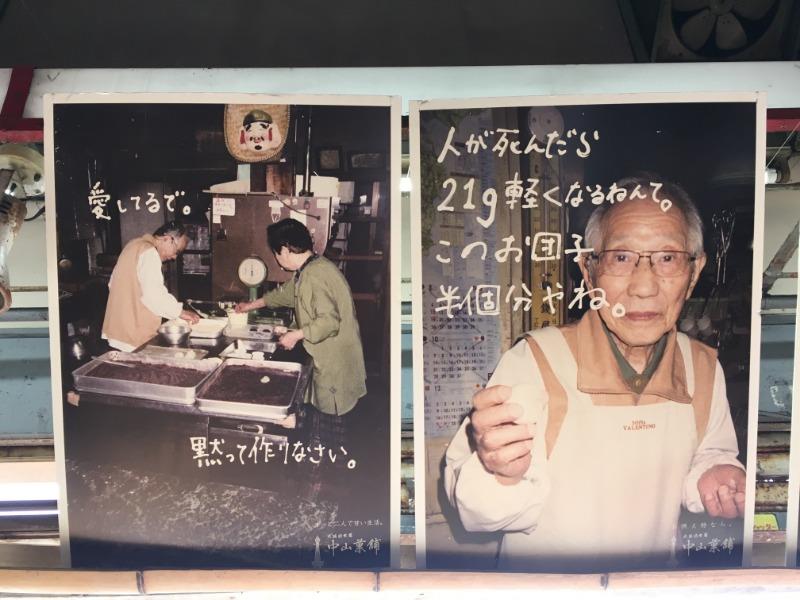 愛してるで。
黙って作りなさい。
二人で甘い生活。
中山菓舗
人が死んだら
21g軽くなるねんて。
このお団子
半個分やね。
VALENTINO
中山菓舗